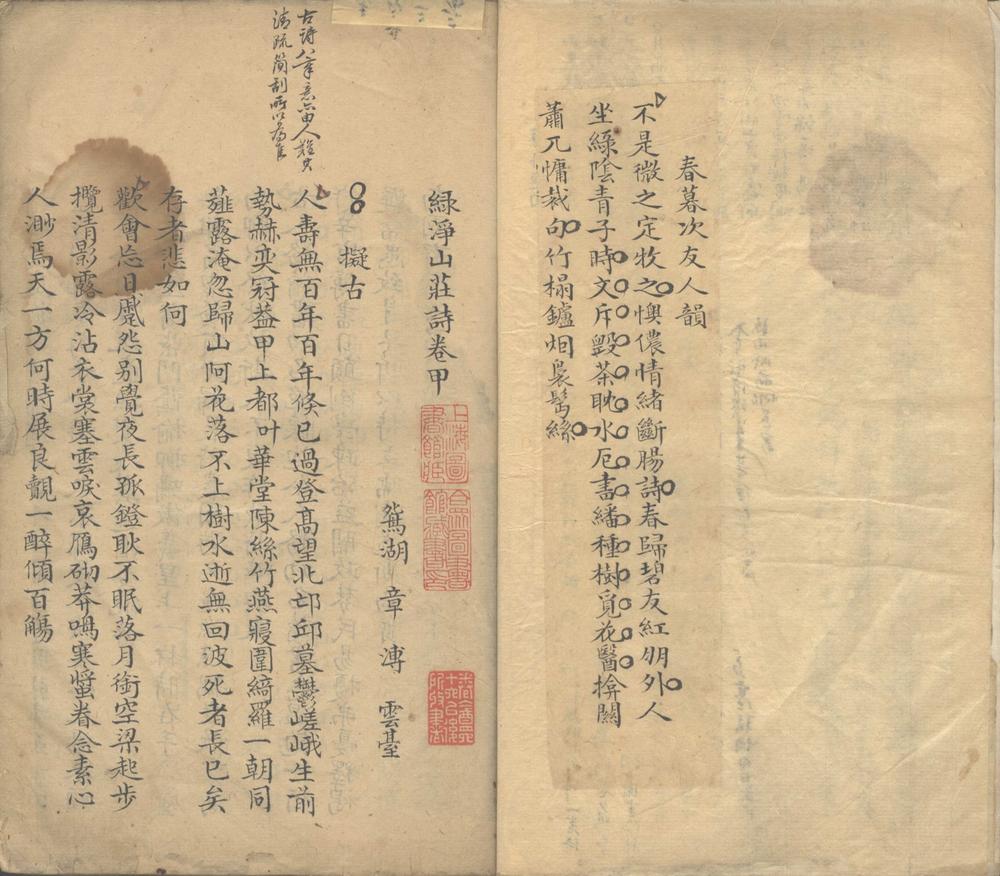 春暮次友人韻
不是微之定牧之懊儂情緒斷腸詩春歸碧友紅朋外人
坐綠陰青子時文斥毀茶耽水厄書繙種樹覓花醫揜關
蕭兀慵裁句竹榻鑪烟裊髩絲
綠淨山莊詩卷甲
鴛湖章溥雲臺
擬古
人壽無百年百年倏已過登高望北邙邱墓鬱嵯峨生前
勢赫奕冠葢甲上都叶華堂陳絲竹燕寢圍綺羅一朝同
薤露淹忽歸山阿花落不上樹水逝無回波死者長已矣
存者悲如何
歡會忘日蹙怨別覺夜長孤鐙耿不眠落月銜空梁起步
攬清影露冷沾衣裳塞雲唳哀鴈砌莽鳴寒螿眷念素心
人渺焉天一方何時展良覿一醉傾百觴
古詩八章意
清疏簡
上海圖書館藏